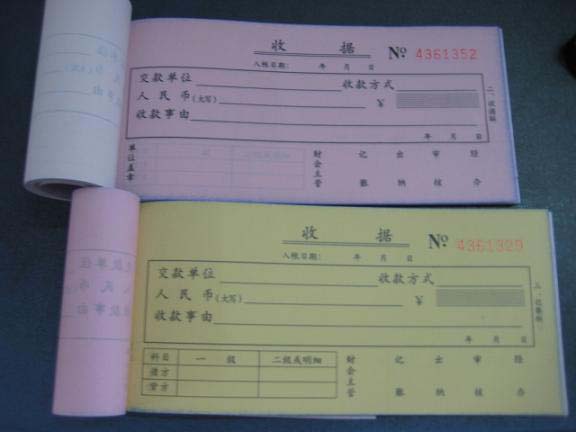 收 据 № 4361352
入帐日期: 年 月 日
交款单位 收款方式
人民币(大写) ¥
收款事由
年 月 日
单位盖章 财会主管 记账 出纳 审核 经办
收 据 № 4361329
入帐日期: 年 月 日
交款单位 收款方式
人民币(大写) ¥
收款事由
年 月 日
科目 一级 二级或明细 财会主管 记账 出纳 审核 经办
借方
贷方